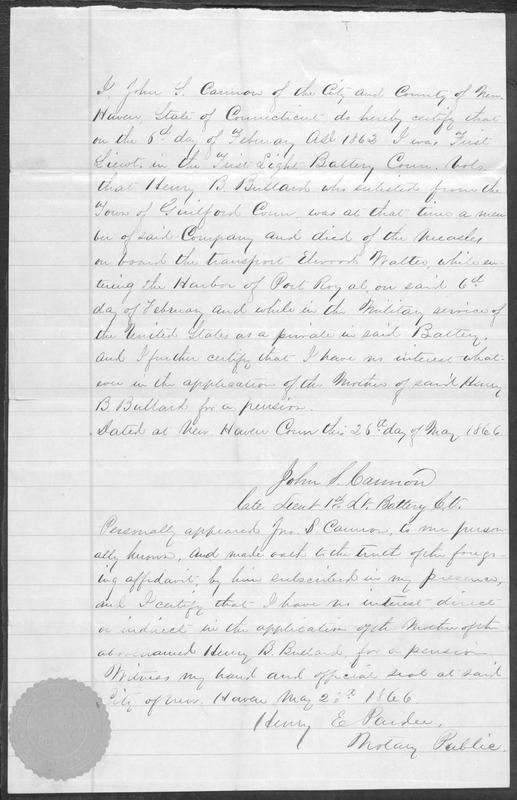 I John S. Cannon of the City and County of New
Haven, State of Connecticut do hereby certify that
on the 6th day of February AD 1862 I was First
Lieut. in the First Light Battery Conn. Vols.
that Henry B. Bullard who enlisted from the
Town of Guilford Conn. was at that time a mem
ber of said Company and died of the Measles
on board the transport Elwood Walter, while en-
tering the Harbor of Port Royal, on said 6th
day of February and while in the Military service of
the United States as a private in said Battery.
And I further certify that I have no interest what-
ever in the application of the Mother of said Henry
B. Bullard for a pension.
Dated at New Haven Conn this 26th day of May 1866
John S. Cannon
late Lieut 1st Lt. Battery C.V.
Personally appeared Jno. S. Cannon, to me person-
ally known, and made oath to the truth of the forego-
ing affidavit by him subscribed in my presence,
and I certify that I have no interest direct
or indirect in the application of the Mother of the
above named Henry B. Bullard for a pension
Witness my hand and official seal at said
City of New Haven May 26th 1866
Henry E. Pardee,
Notary Public.